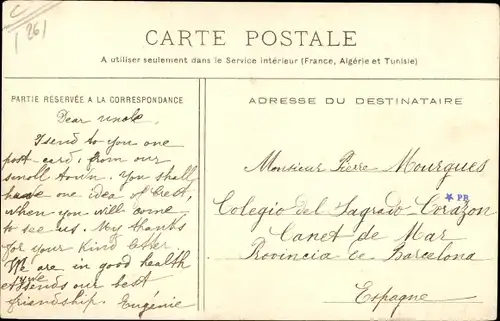 C
26
CARTE POSTALE
A utiliser seulement dans le Service intérieur (France, Algérie et Tunisie)
PARTIE RÉSERVÉE A LA CORRESPONDANCE
Dear uncle.
I send to you one
post-card, from our
small town. You shall
have one idea of Crest,
when you will come
to see us. My thanks
for your kind letter.
We are in good health
et sends our best
friendship. Eugénie
ADRESSE DU DESTINATAIRE
Monsieur Pierre Mourgues
Colegio del Sagrado-Corazon
PB
Canet de Mar
Provincia de Barcelona
Espagne